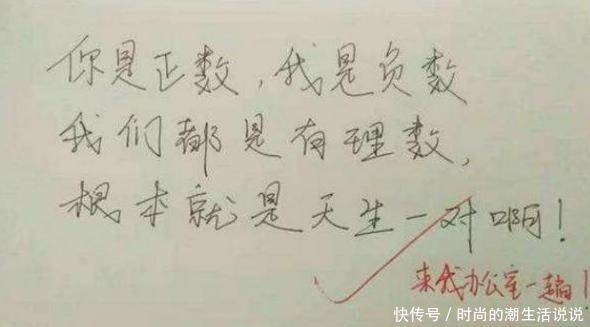 你是正数，我是负数
我们都是有理数，
根本就是天生一对啊！
来我办公室一趟！
快传号／时尚的潮生活说说